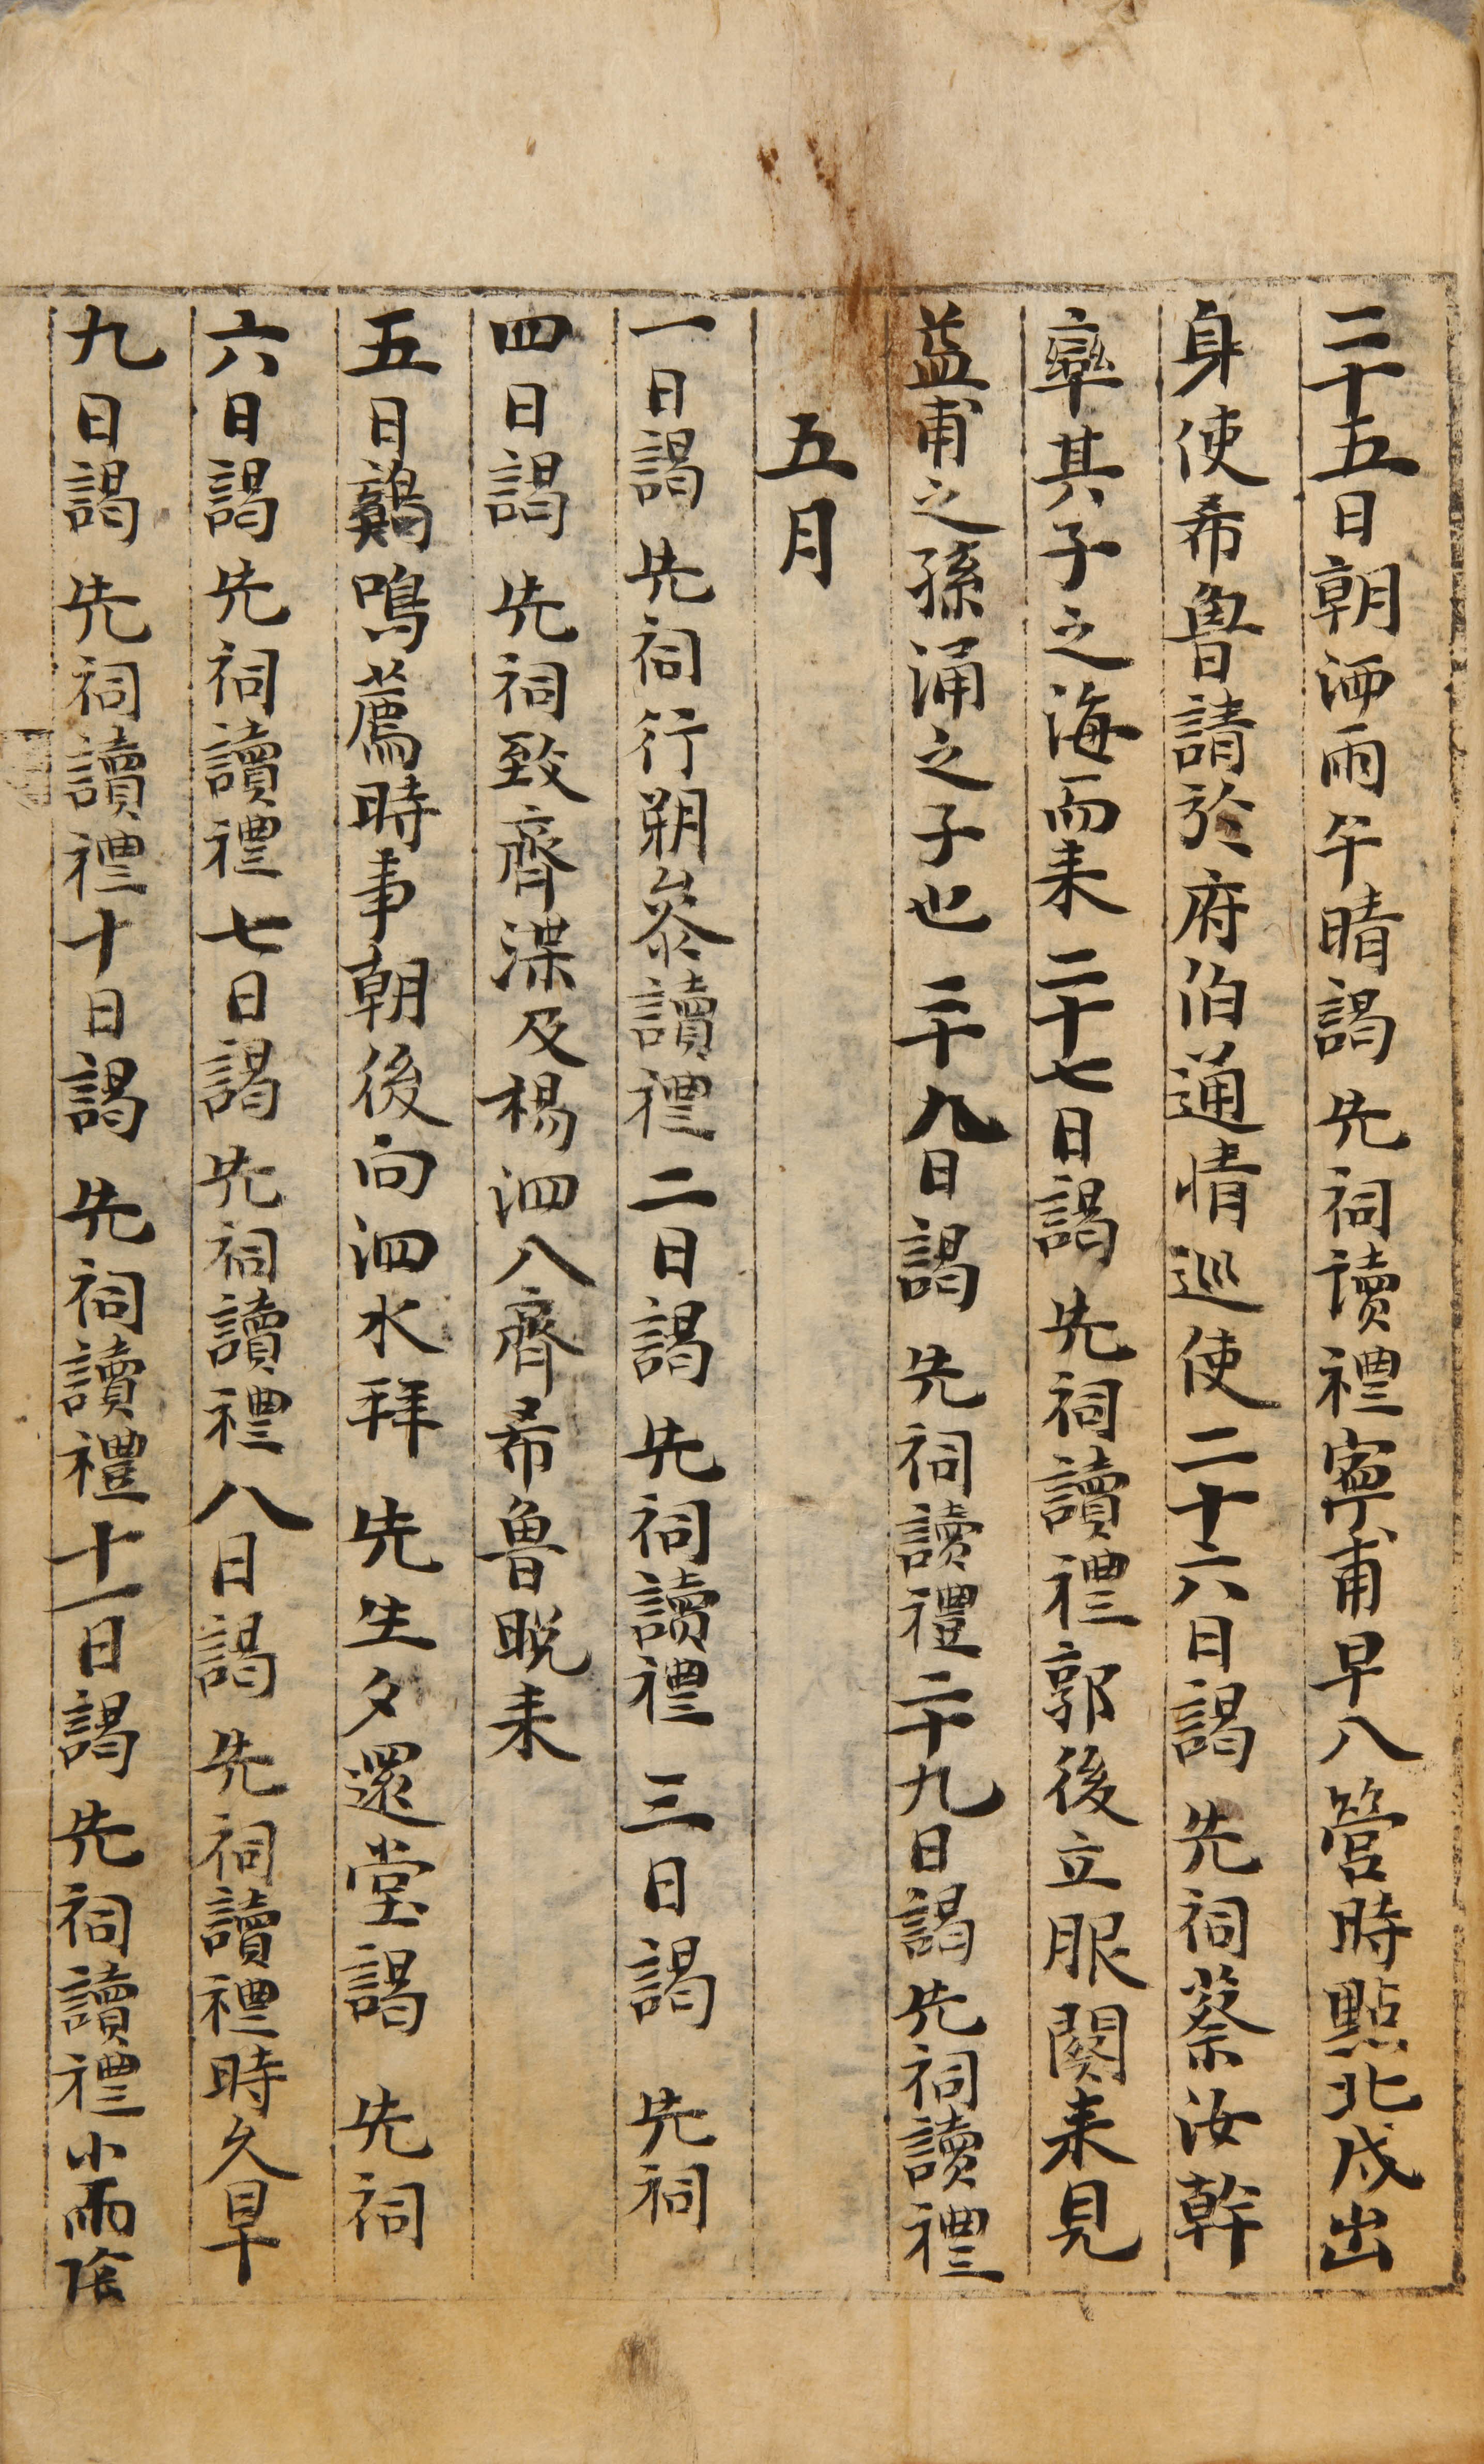 二十五日朝洒雨午晴謁 先祠读禮寗甫早入營時點北戍出
身使希魯請於府伯通情巡使二十六日謁 先祠蔡汝幹
率其子之海而来 二十七日謁 先祠讀禮郭後立服闋来見
益甫之孫涌之子也 二十八日謁 先祠讀禮二十九日謁先祠讀禮
五月
一日謁 先祠行朔叅讀禮二日謁 先祠讀禮 三日謁 先祠
四日謁 先祠致齊渫及楊泗入齊希魯晩来
五日鷄鳴薦時事朝後向泗水拜 先生夕還堂謁 先祠
六日謁 先祠讀禮 七日謁 先祠讀禮 八日謁 先祠讀禮時久旱
九日謁 先祠讀禮十日謁 先祠讀禮十一日謁 先祠讀禮小雨陰